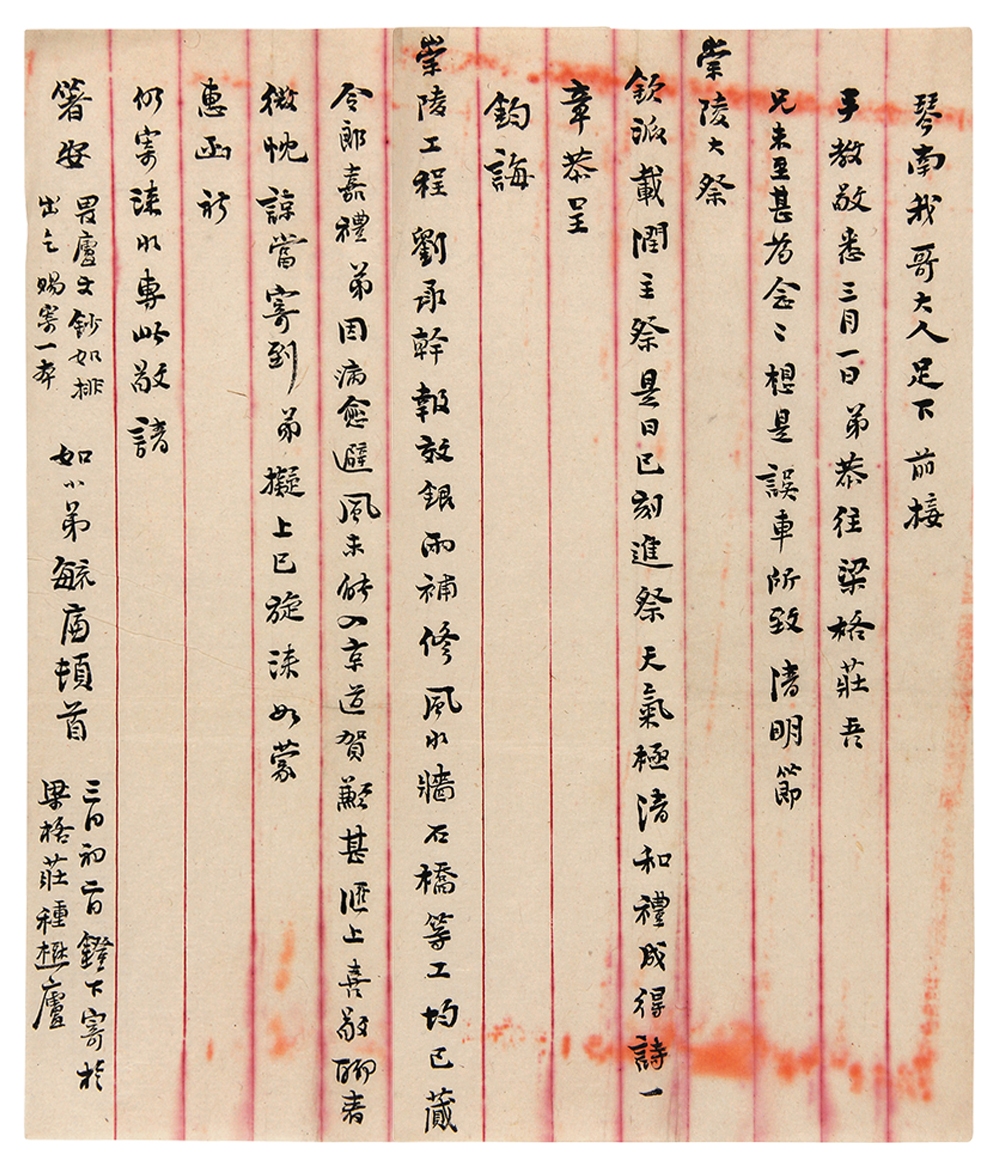 琴南我哥大人足下前接
手教敬悉三月一日弟恭往梁格莊吾
兄未至甚為念〻想是誤車所致清明節
崇陵大祭
欽派載潤主祭是日巳刻進祭天氣極清和禮成得詩一
章恭呈
鈞誨
崇陵工程劉承幹報效銀兩補修風水牆石橋等工均已蕆
令郎嘉禮弟因病愈避風未能入京道賀歉甚匯上喜敬聊表
微忱諒當寄到弟擬上巳旋淶如蒙
惠函祈
仍寄淶水專此敬請
箸安
畏廬文鈔如排
出乞賜寄一本
如小弟毓廎頓首
三月初二日鐙下寄於
梁格莊種樹廬